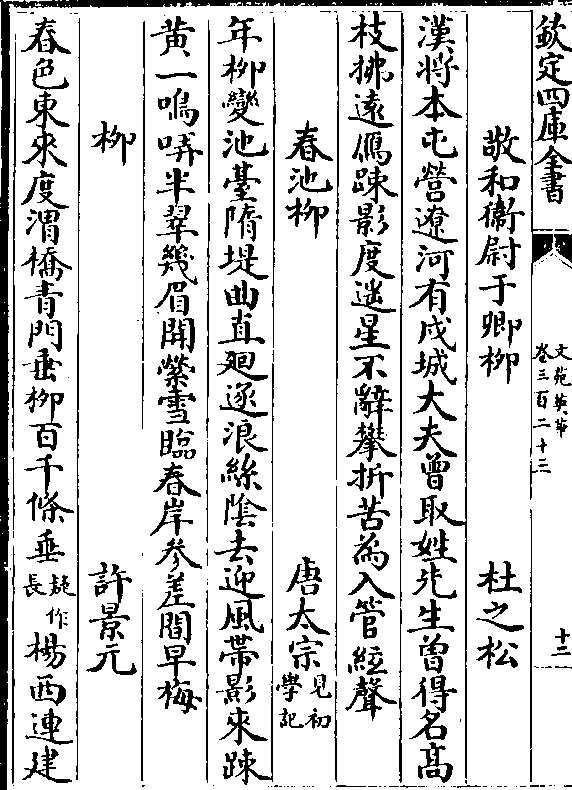 欽定四庫全書 文苑英華 卷三百二十三 十二
敬和衛尉于卿柳 杜之松
漢將本屯營遼河有戍城大夫曾取姓先生曾得名高
枝拂遠鴈踈影度遥星不辭攀折苦為入管絃聲
春池柳 唐太宗 見初學記
年柳變池臺隋堤曲直廻逐浪絲陰去迎風帶影來踈
黄一鳴哢半翠幾眉開縈雪臨春岸參差間早梅
柳 許景元
春色東來度渭橋青門垂柳百千條垂 疑作長 楊西連建